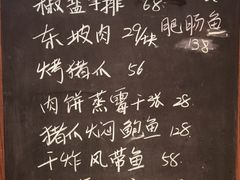 椒盐牛排 68.
东坡肉 29/块
肥肠鱼 138.
烤猪爪 56
肉饼蒸霉干张 28.
猪爪焖鲍鱼 128.
干炸风带鱼 58.